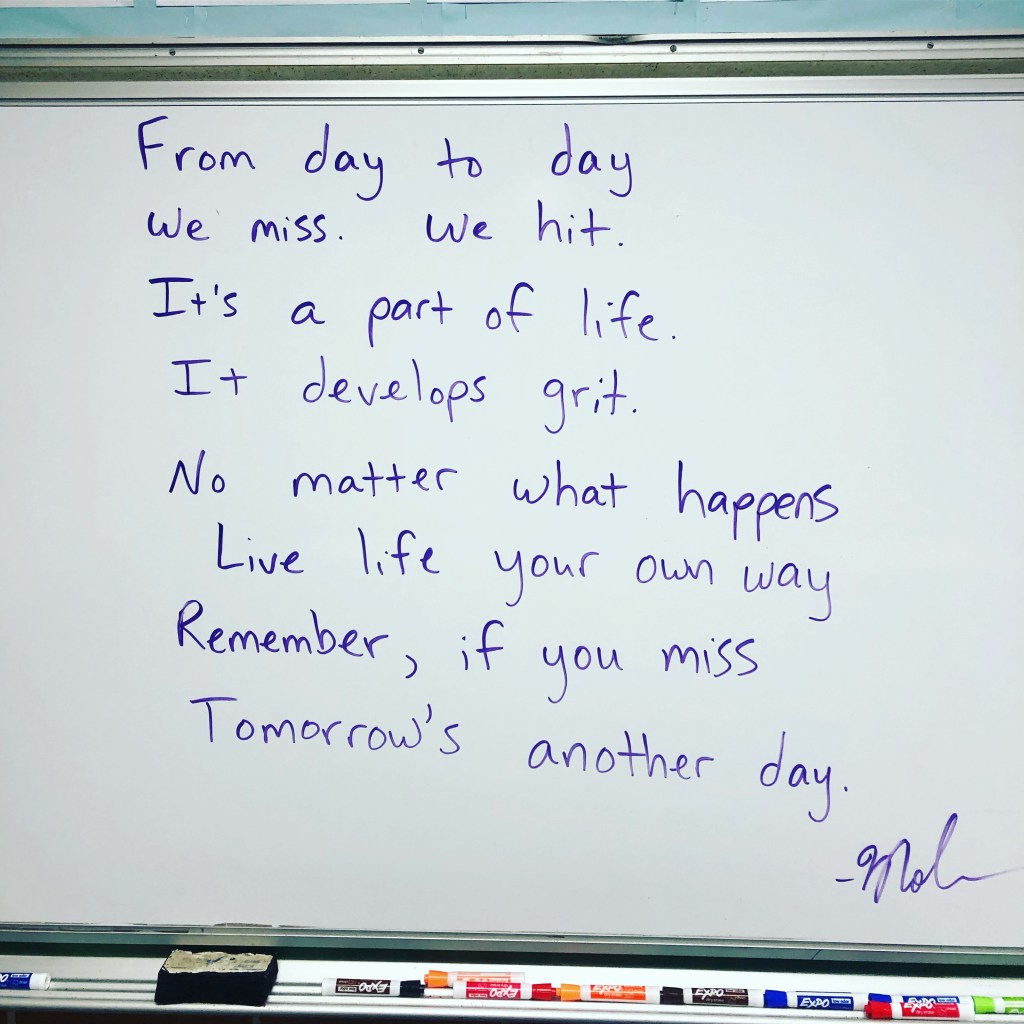 From day to day
We miss. We hit.
It's a part of life.
It develops grit.
No matter what happens
Live life your own way
Remember, if you miss
Tomorrow's another day.
EXPO
EXPO
EXPO
EXPO
EXPO
EXPO